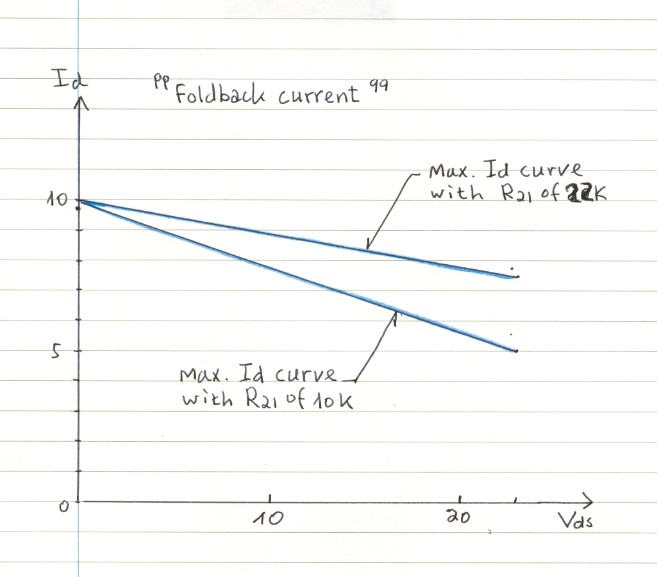 Id
"Foldback current"
Max. Id curve
with R21 of 22K
10
5
Max. Id curve
with R21 of 10K
0
10
20
Vds